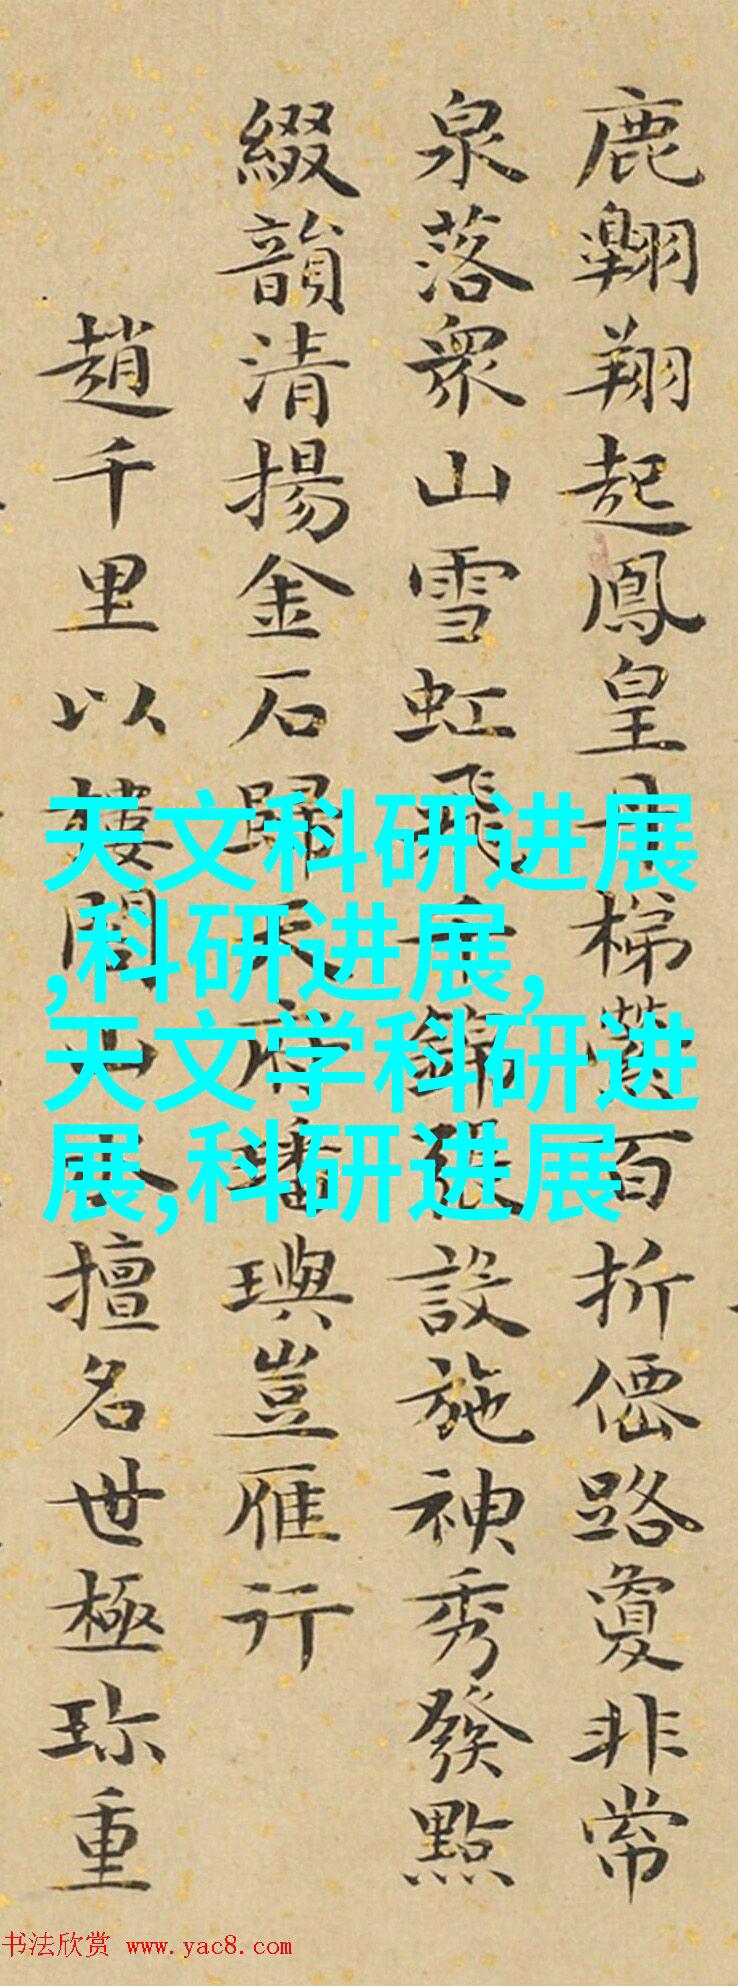 鹿翺翔起鳳皇梯百折僊路敻非常
泉落衆山雪虹飛千錦張設施神秀發點
綴韻清揚金石歸天府璠璵豈雁行
趙千里以樓閣山水擅名世極珎重
天文科研进展
,科研进展,
天文学科研进
展,科研进展
书法欣赏 www.yac8.com